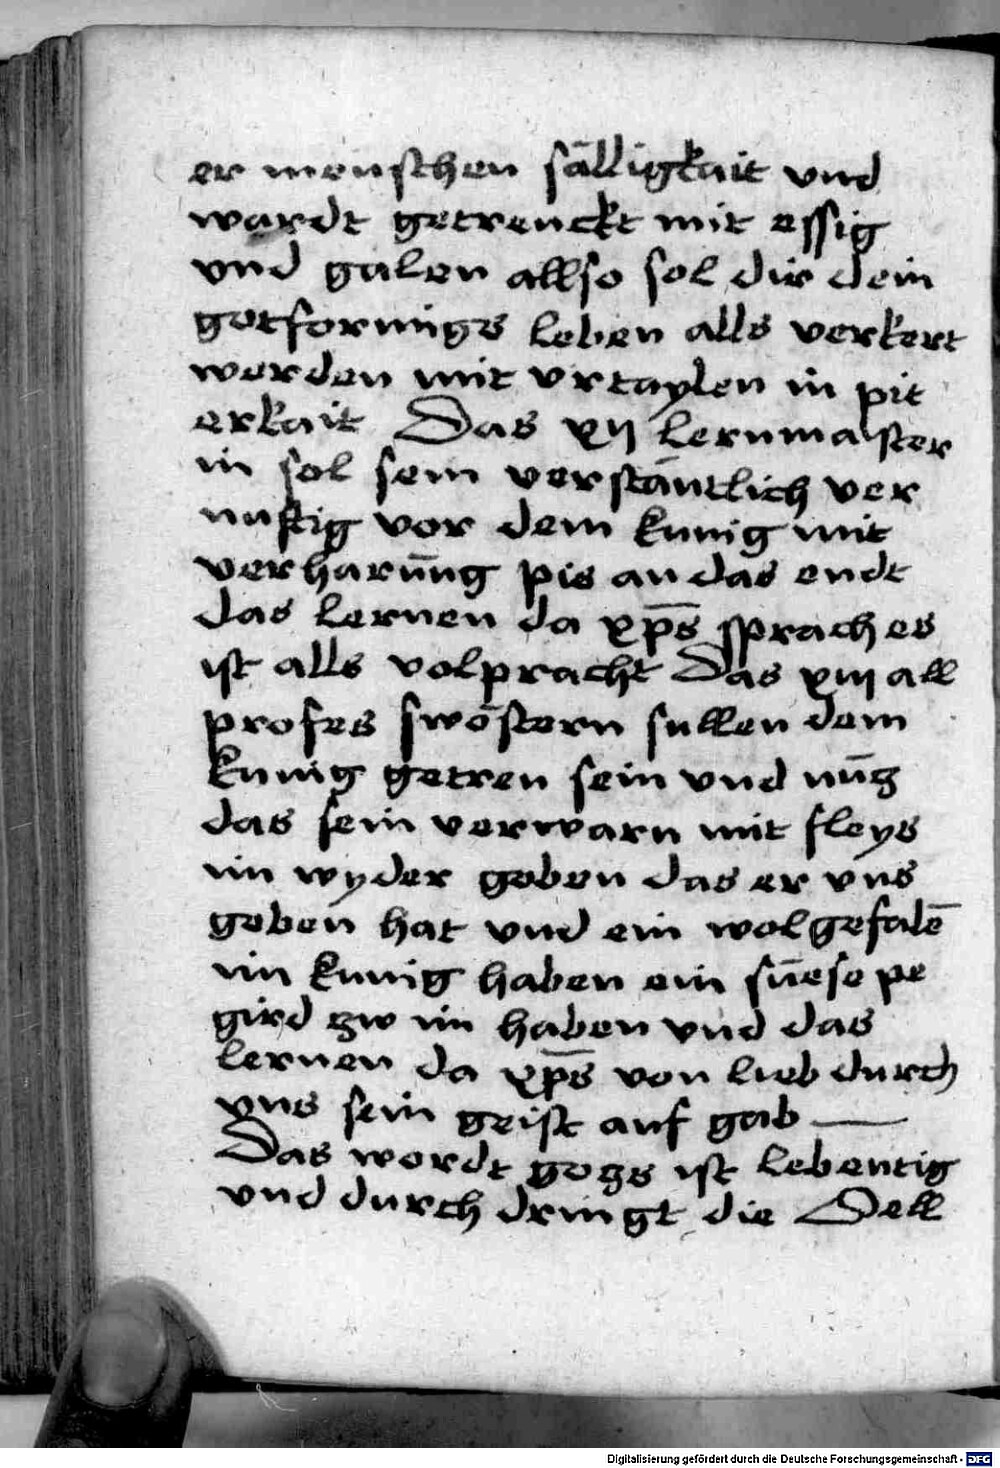 er menschen sälligkait vnd
wardt getrenckt mit essig
vnd galen allso sol dir dein
gotformigs leben alls verkert
werden mit vrtaylen in pit
erkait Das xij lernmaister
in sol sein verstäntlich ver
nuftig vor dem kunig mit
verharūng pis an das ende
das lernen da xp̄s sprach es
ist alls volpracht Das xiij all
profes swöstern sullen dem
kunig getreu sein vnd nūz
das sein verwarn mit fleys
im wyder geben das er vns
geben hat vnd ein wolgefalē
im kunig haben ein süese pe
gird zw im haben vnd das
lernen da xp̄s von lieb durch
vns sein geist auf gab
Das wordt gogs ist lebentig
vnd durch dringt die Sell
Digitalisierung gefördert durch die Deutsche Forschungsgemeinschaft - DFG